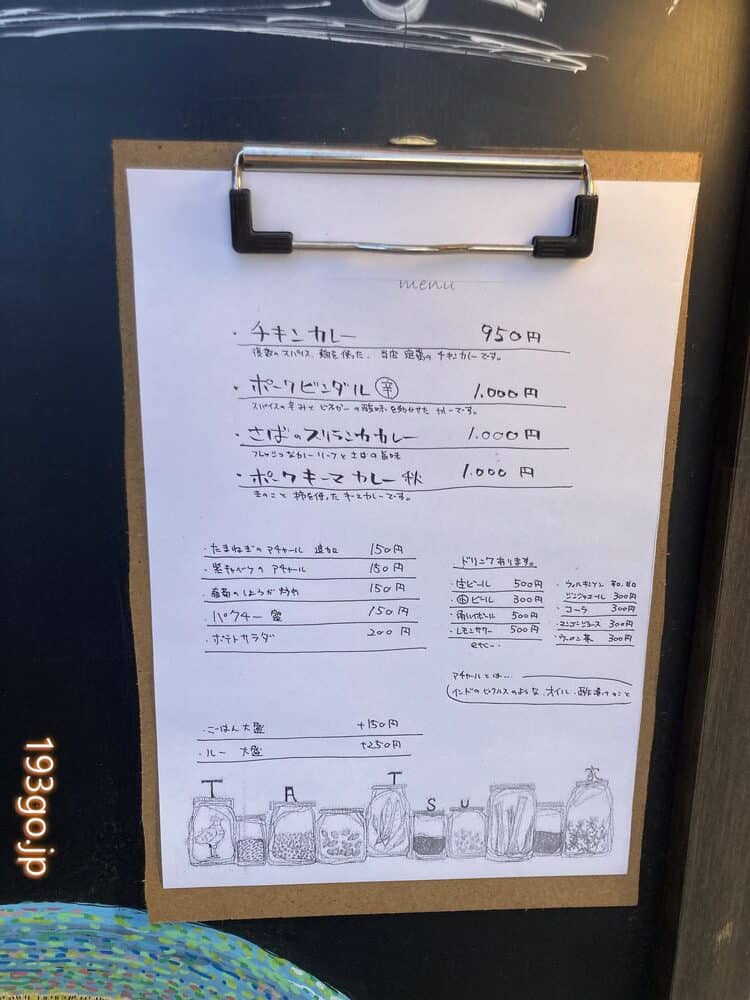 menu
・チキンカレー 950円
複数のスパイス、麹を使った、当店定番のチキンカレーです。
・ポークビンダル 辛 1.000円
スパイスの辛みとビネガーの酸味を効かせたカレーです。
・さばのスリランカカレー 1.000円
フレッシュなカレーリーフとさばの旨味
・ポークキーマカレー 秋 1.000円
きのこと柿を使ったキーマカレーです。
・たまねぎのアチャール 追加 150円
・紫キャベツのアチャール 150円
・蓮根のしょうが炒め 150円
・パクチー 盛 150円
・ポテトサラダ 200円
ドリンクあります。
・生ビール 500円
・小ビール 300円
・角ハイボール 500円
・レモンサワー 500円
etc…
・ウィルキンソン
ジンジャエール 300円
・コーラ 300円
・マンゴージュース 300円
・ウーロン茶 300円
アチャールとは…
インドのピクルスのような、オイル、酢漬けのこと
・ごはん大盛 +150円
・ルー 大盛 +250円
T A T S U 家
193go.jp